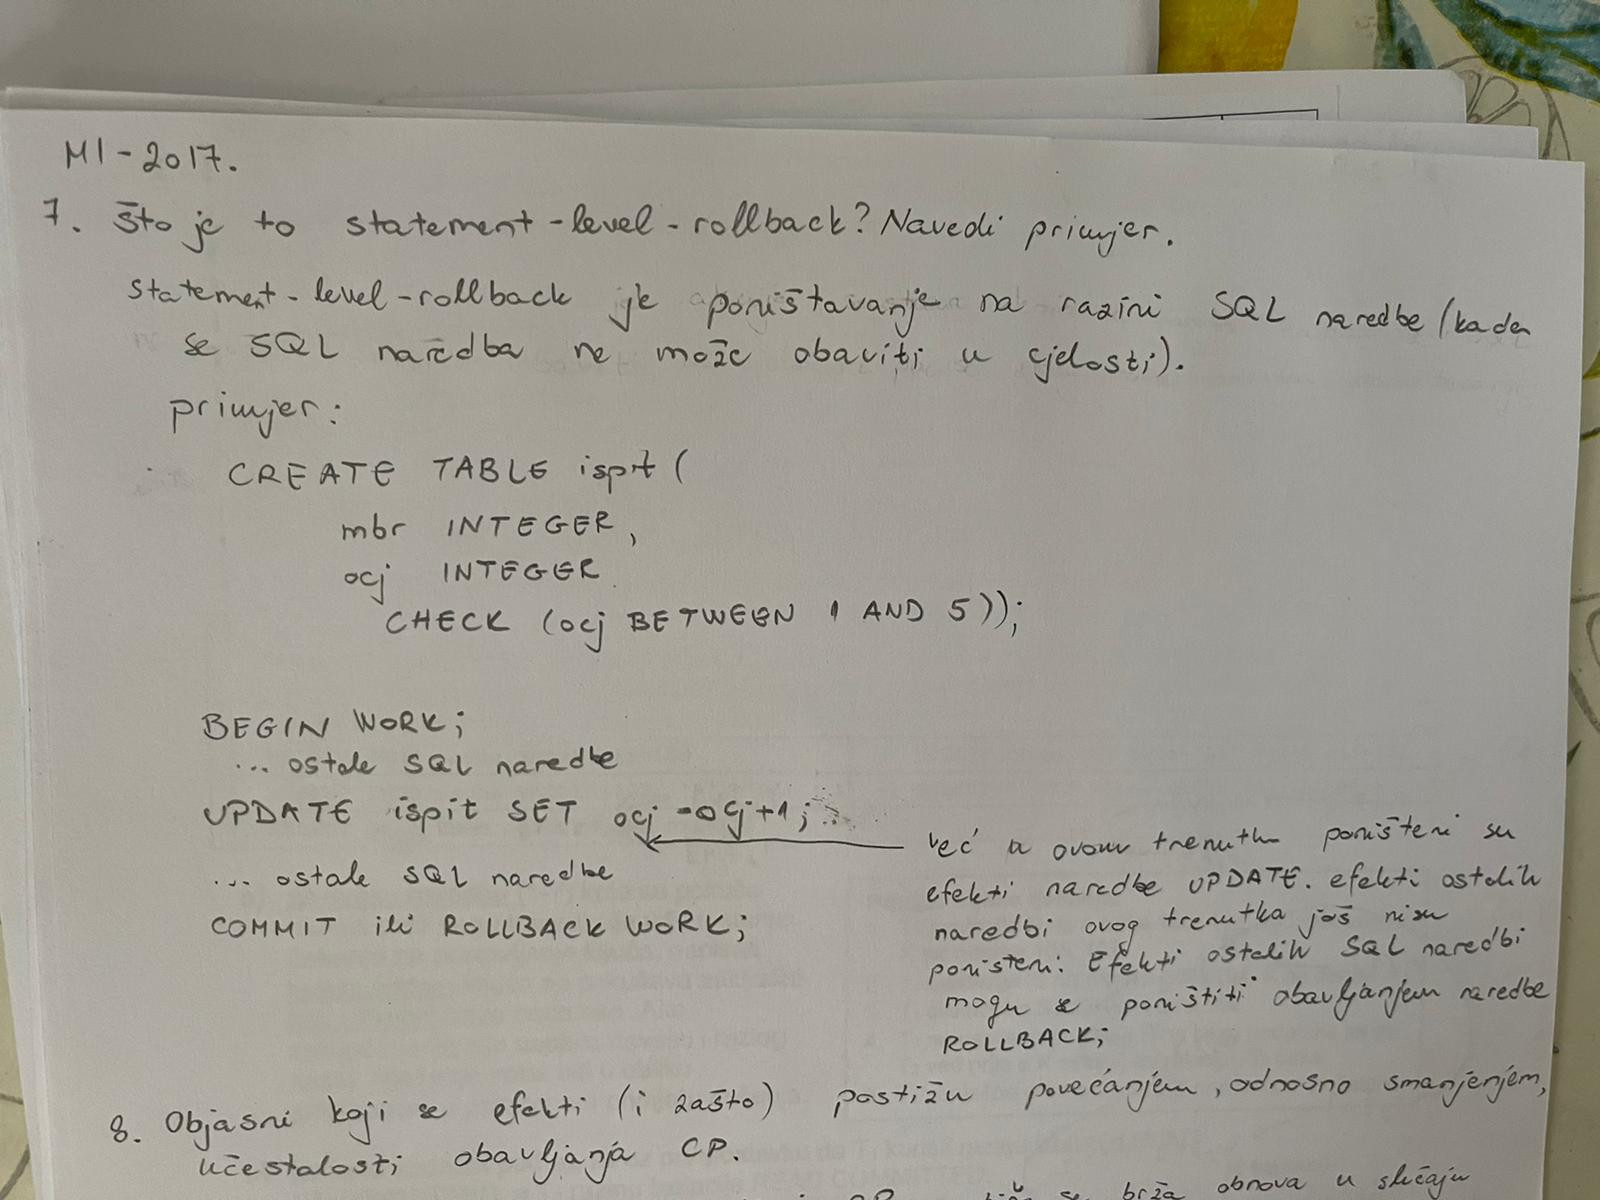 MI-2017.
7. Što je to statement-level-rollback? Navedi primjer.
statement-level-rollback je poništavanje na razini SQL naredbe (kada
se SQL naredba ne može obaviti u cjelosti).
primjer:
CREATE TABLE ispit (
mbr INTEGER,
ocj INTEGER
CHECK (ocj BETWEEN 1 AND 5));
BEGIN WORK;
... ostale SQL naredbe
UPDATE ispit SET ocj=ocj+1;
... ostale SQL naredbe
COMMIT ili ROLLBACK WORK;
već u ovom trenutku poništeni su
efekti naredbe UPDATE. efekti ostalih
naredbi ovog trenutka još nisu
poništeni. Efekti ostalih SQL naredbi
mogu se poništiti obavljanjem naredbe
ROLLBACK;
8. Objasni koji se efekti (i zašto) postižu povećanjem, odnosno smanjenjem,
učestalosti obavljanja CP.
se brža obnova u slučaju